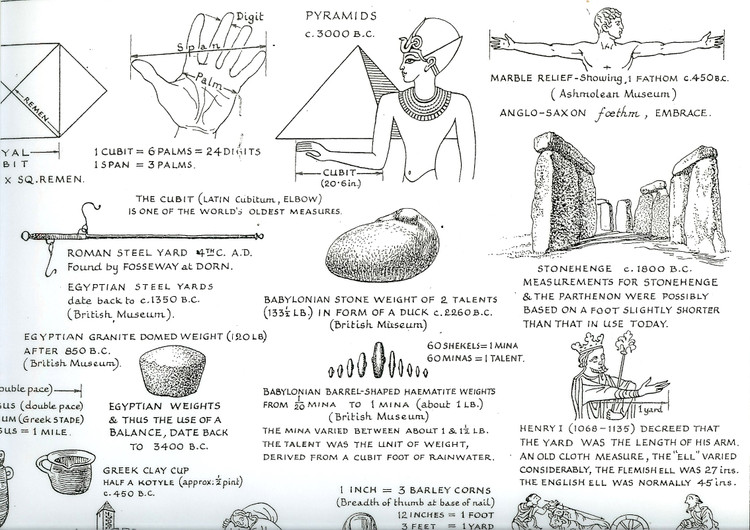 Digit
Span
Palm
REMEN
YAL
BIT
X SQ.REMEN.
1 CUBIT = 6 PALMS = 24 DIGITS
1 SPAN = 3 PALMS.
PYRAMIDS
c. 3000 B.C.
CUBIT
(20·6in.)
MARBLE RELIEF-Showing, 1 FATHOM c.450B.C.
(Ashmolean Museum)
ANGLO-SAXON fœthm, EMBRACE.
THE CUBIT (LATIN Cubitum, ELBOW)
IS ONE OF THE WORLD'S OLDEST MEASURES.
ROMAN STEEL YARD 4TH C. A.D.
Found by FOSSEWAY at DORN.
EGYPTIAN STEEL YARDS
date back to c.1350 B.C.
(British Museum).
BABYLONIAN STONE WEIGHT OF 2 TALENTS
(133½ LB.) IN FORM OF A DUCK c.2260 B.C.
(British Museum)
STONEHENGE c. 1800 B.C.
MEASUREMENTS FOR STONEHENGE
& THE PARTHENON WERE POSSIBLY
BASED ON A FOOT SLIGHTLY SHORTER
THAN THAT IN USE TODAY.
EGYPTIAN GRANITE DOMED WEIGHT (120LB)
AFTER 850 B.C.
(British Museum).
EGYPTIAN WEIGHTS
& THUS THE USE OF A
BALANCE, DATE BACK
TO 3400 B.C.
60 SHEKELS = 1 MINA
60 MINAS = 1 TALENT.
BABYLONIAN BARREL-SHAPED HAEMATITE WEIGHTS
FROM 1/20 MINA TO 1 MINA (about 1 LB.)
(British Museum)
THE MINA VARIED BETWEEN ABOUT 1 & 1½ LB.
THE TALENT WAS THE UNIT OF WEIGHT,
DERIVED FROM A CUBIT FOOT OF RAINWATER.
1 yard
HENRY I (1068-1135) DECREED THAT
THE YARD WAS THE LENGTH OF HIS ARM.
AN OLD CLOTH MEASURE, THE "ELL" VARIED
CONSIDERABLY, THE FLEMISH ELL WAS 27 ins.
THE ENGLISH ELL WAS NORMALLY 45 ins.
ouble pace)
SUS (double pace)
UM (Greek STADE)
SUS = 1 MILE.
GREEK CLAY CUP
HALF A KOTYLE (approx: ½ pint)
c. 450 B.C.
1 INCH = 3 BARLEY CORNS
(Breadth of thumb at base of nail)
12 INCHES = 1 FOOT
3 FEET = 1 YARD